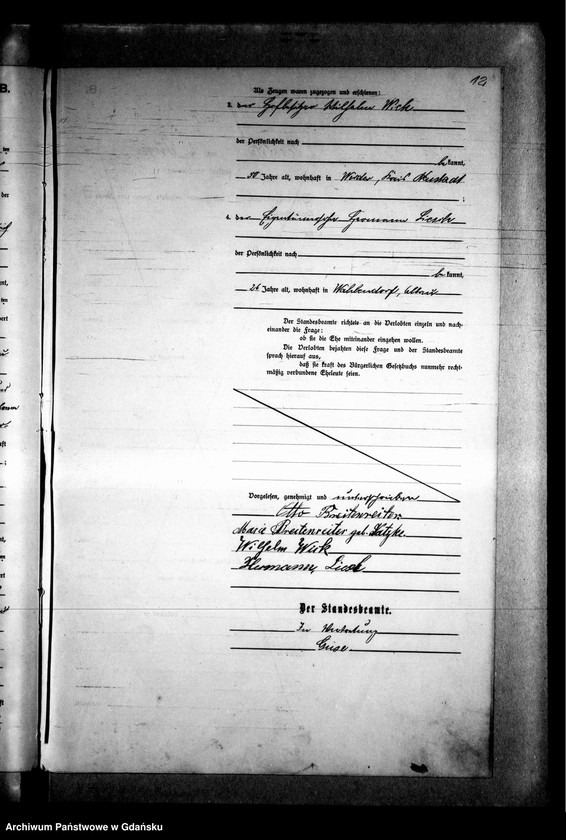 12
B.
Als Zeugen waren zugezogen und erschienen:
3. der Hofbesitzer Wilhelm Wick
der Persönlichkeit nach
be kannt,
Jahre alt, wohnhaft in Kreis Neustadt
;
4. der Eigentümersohn Hermann
der Persönlichkeit nach
be kannt,
24 Jahre alt, wohnhaft in Wahlendorf,
Der Standesbeamte richtete an die Verlobten einzeln und nach-
einander die Frage:
ob sie die Ehe miteinander eingehen wollen.
Die Verlobten bejahten diese Frage und der Standesbeamte
sprach hierauf aus,
daß sie kraft des Bürgerlichen Gesetzbuchs nunmehr recht-
mäßig verbundene Eheleute seien.
Vorgelesen, genehmigt und unterschrieben
Otto Breitenreiter
Maria Breitenreiter geb.
Wilhelm Wick
Hermann
Der Standesbeamte.
In Vertretung
Archiwum Państwowe w Gdańsku